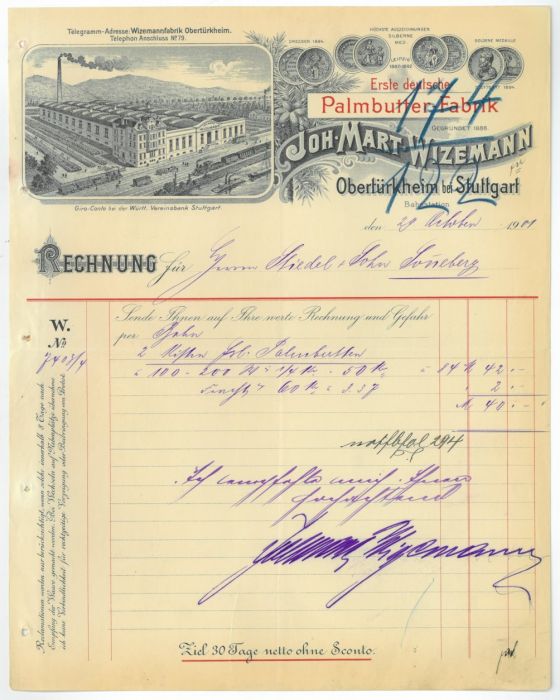 Telegramm-Adresse: Wizemannfabrik Obertürkheim.
Telephon Anschluss No. 79.
HÖCHSTE AUSZEICHNUNGEN
SILBERNE
MED.
DRESDEN 1894.
LEIPZIG
1892-1892
GOLDENE MEDAILLE
1894.
Erste deutsche
Palmbutter-Fabrik
GEGRÜNDET 1886.
JOH. MART. WIZEMANN
Obertürkheim bei Stuttgart
Bahnstation
Giro-Conto bei der Württ. Vereinsbank Stuttgart.
den 29 October 1901
RECHNUNG für Herrn Stiedel & Sohn Sonneberg
W.
No.
7403/4
Sende Ihnen auf Ihre werte Rechnung und Gefahr
per Bahn
2 Kisten Palmbutter
100 - 200 à 1/4 K. - 50 K. à 84 M 42.-
60 K. 2.-
M 40.-
294
Ich empfehle mich Ihnen
hochachtend
Joh. Mart. Wizemann
Reclamationen werden nur berücksichtigt, wenn solche innerhalb 8 Tage nach
Empfang der Waare gemacht werden. Bei Wechseln auf Nebenplätze übernehme
ich keine Verbindlichkeit für rechtzeitige Vorzeigung oder Beibringung von Protest.
Ziel 30 Tage netto ohne Sconto.